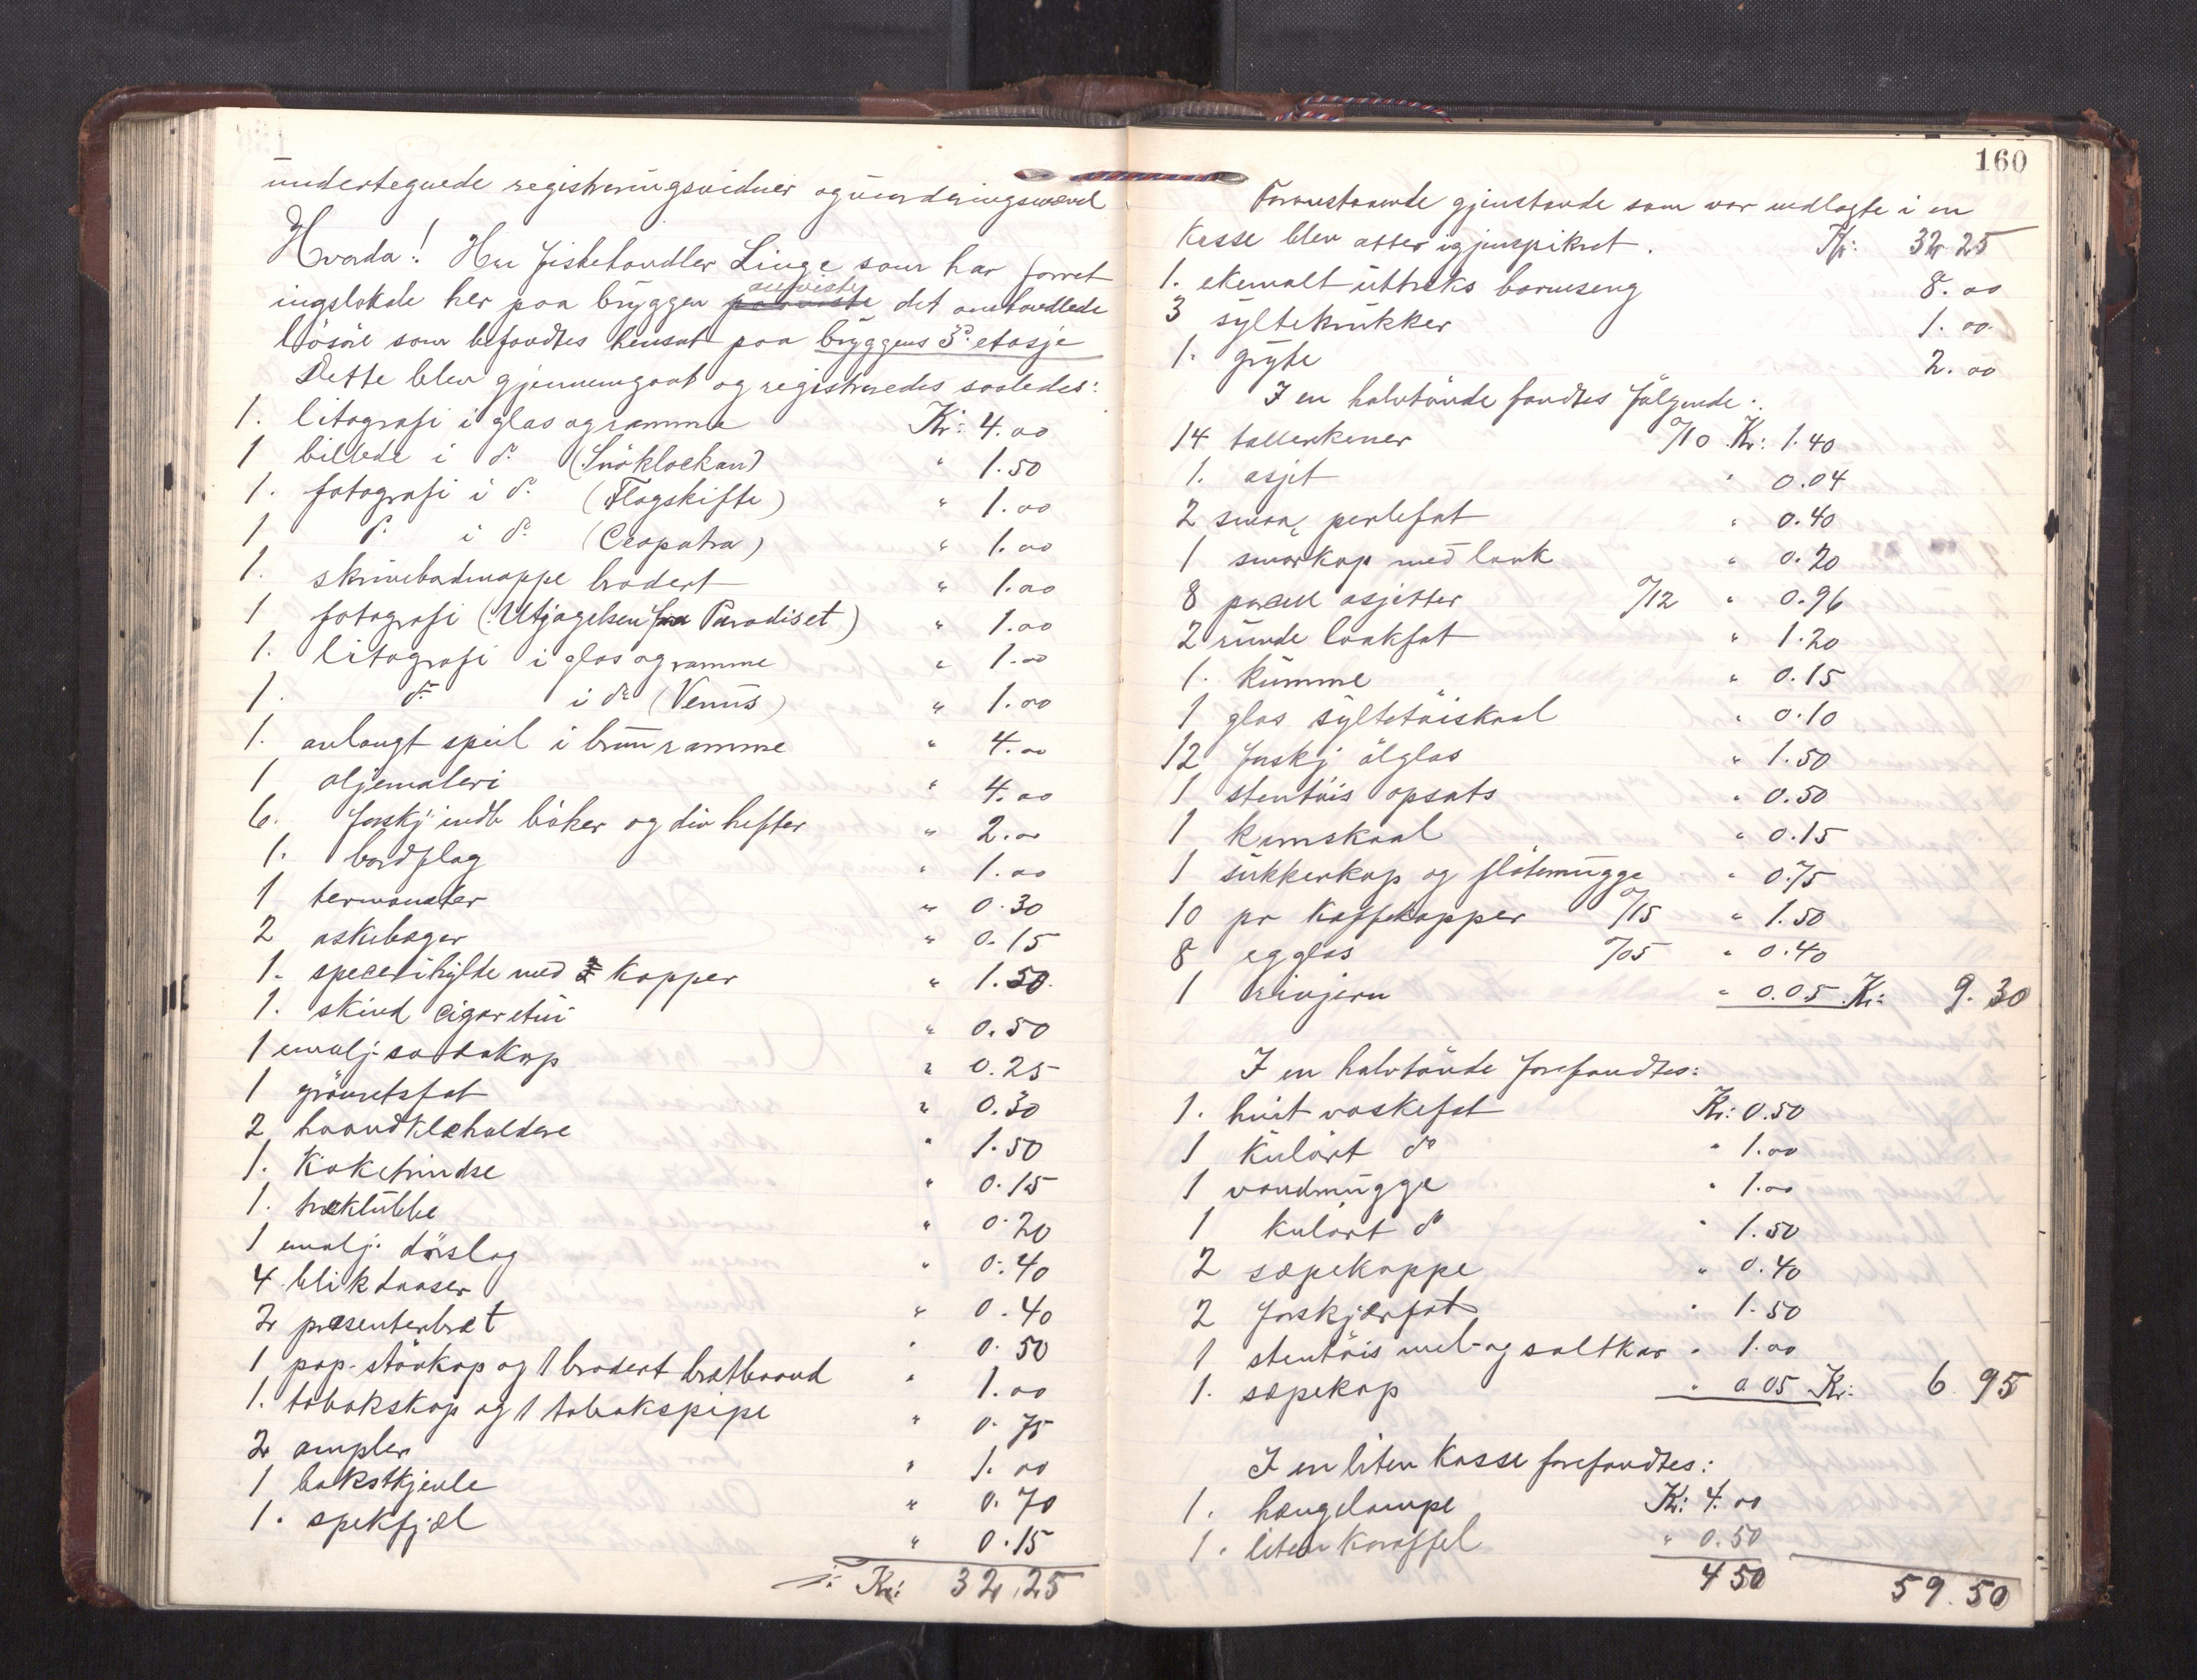 undertegnede registreringsvidner og vurderingsmænd
Hvorda! Her fiskehandler Linge som har forret
ingslokale her paa bryggen paaviste anviste det omhandlede
lösöre som befandtes hensat paa bryggens 3die etasje
Dette blev gjennemgaat og registreredes saaledes:
1. litografi i glas og ramme Kr: 4.00
1 billede i do. (Snöklockan) " 1.50
1. fotografi i do. (Flagskifte) " 1.00
1 do. i do. (Cleopatra) " 1.00
1. skrivebordmappe brodert " 1.00
1 fotografi (Utjagelsen fra Paradiset) " 1.00
1. litografi i glas og ramme " 1.00
1. do i do (Venus) " 1.00
1. avlangt speil i brun ramme " 4.00
1 oljemaleri " 4.00
6. forskj. indb böker og div hefter " 2.00
1. bordflag " 1.00
1 termometer " 0.30
2 askebæger " 0.15
1. specerihylde med 2 kopper " 1.50
1. skind cigaretui " 0.50
1 emalj. sodakop " 0.25
1 grönnetsfat " 0.30
2 haandklæholdere " 1.50
1. kokefrindse " 0.15
1. træklubbe " 0.20
1 emalj. dörslag " 0.40
4 blikdaaser " 0.40
2 præsenterbræt " 0.50
1 pap. stövkop og 1 brodert brætbaand " 1.00
1. tobakskop og 1 tobakspipe " 0.75
2 ampler " 1.00
1 bakstkjevle " 0.70
1. spekfjæl " 0.15
Kr: 32.25
160
Foranstaaende gjenstande som var nedlagte i en
kasse blev atter igjenspikret. Kr: 32 25
1. ekemalt uttræks barneseng 8.00
3 syltekrukker 1.00
1. gryte 2.00
I en halvtönde fandtes fölgende:
14 tallerkener a/10 Kr: 1.40
1. asjet " 0.04
2 smaa perlefat " 0.40
1 smørkop med lauk " 0.20
8 porcell asjetter a/12 " 0.96
2 runde loakfat " 1.20
1. kumme " 0.15
1 glas syltetöiskaal " 0.10
12 forskj ölglas " 1.50
1 stentöis opsats " 0.50
1 kumskaal " 0.15
1 sukkerkop og flötemugge " 0.75
10 pr kaffekopper a/15 " 1.50
8 egglas a/05 " 0.40
1 rivjern " 0.05 Kr: 9.30
I en halvtönde forefandtes:
1. hvit vaskefat Kr: 0.50
1 kulört do " 1.00
1 vandmugge " 1.00
1 kulört do " 1.50
2 sæpekoppe " 0.40
2 forskjærfat " 1.50
1 stentöis mel- og saltkar " 1.00
1. sæpekop " 0.05 Kr: 6.95
I en liten kasse forefandtes:
1. hængelampe Kr: 4.00
1. liten karaffel " 0.50
4 50 59.50